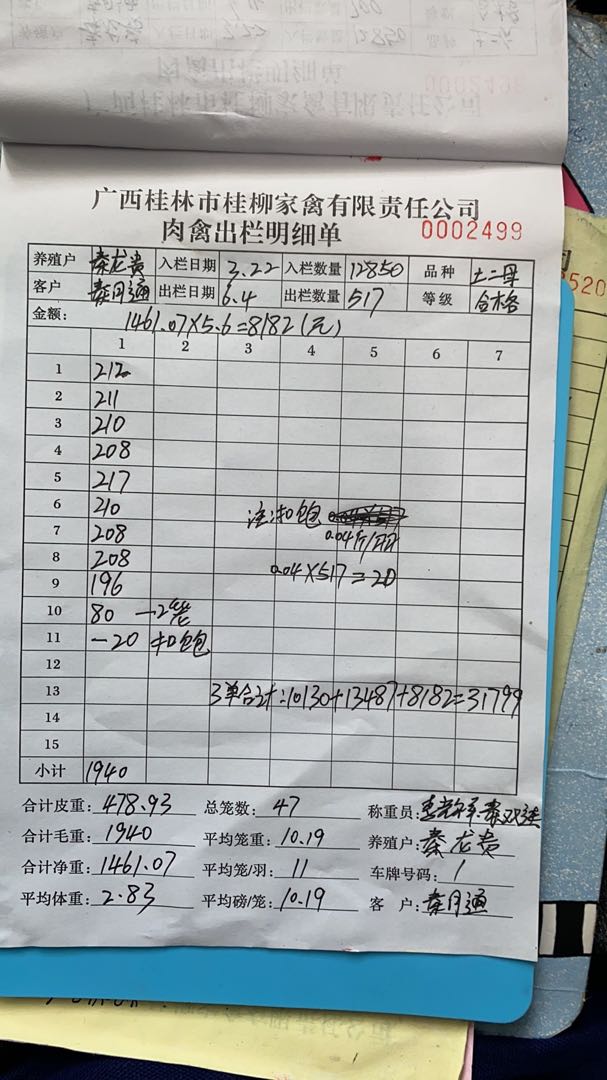 广西桂林市桂柳家禽有限责任公司
肉禽出栏明细单 0002499
养殖户 秦龙贵 入栏日期 3.22 入栏数量 12850 品种 土二母
客户 秦月通 出栏日期 6.4 出栏数量 517 等级 合格
金额: 1461.07×5.6=8182(元)
1 2 3 4 5 6 7
1 212
2 211
3 210
4 208
5 217
6 210 注:扣饱
7 208 0.04斤/羽
8 208 0.04×517=20
9 196
10 80 —2笼
11 -20 扣饱
12
13 3单合计:10130+13487+8182=31799
14
15
小计 1940
合计皮重: 478.93 总笼数: 47 称重员:
合计毛重: 1940 平均笼重: 10.19 养殖户: 秦龙贵
合计净重: 1461.07 平均笼/羽: 11 车牌号码: /
平均体重: 2.83 平均磅/笼: 10.19 客户: 秦月通
520